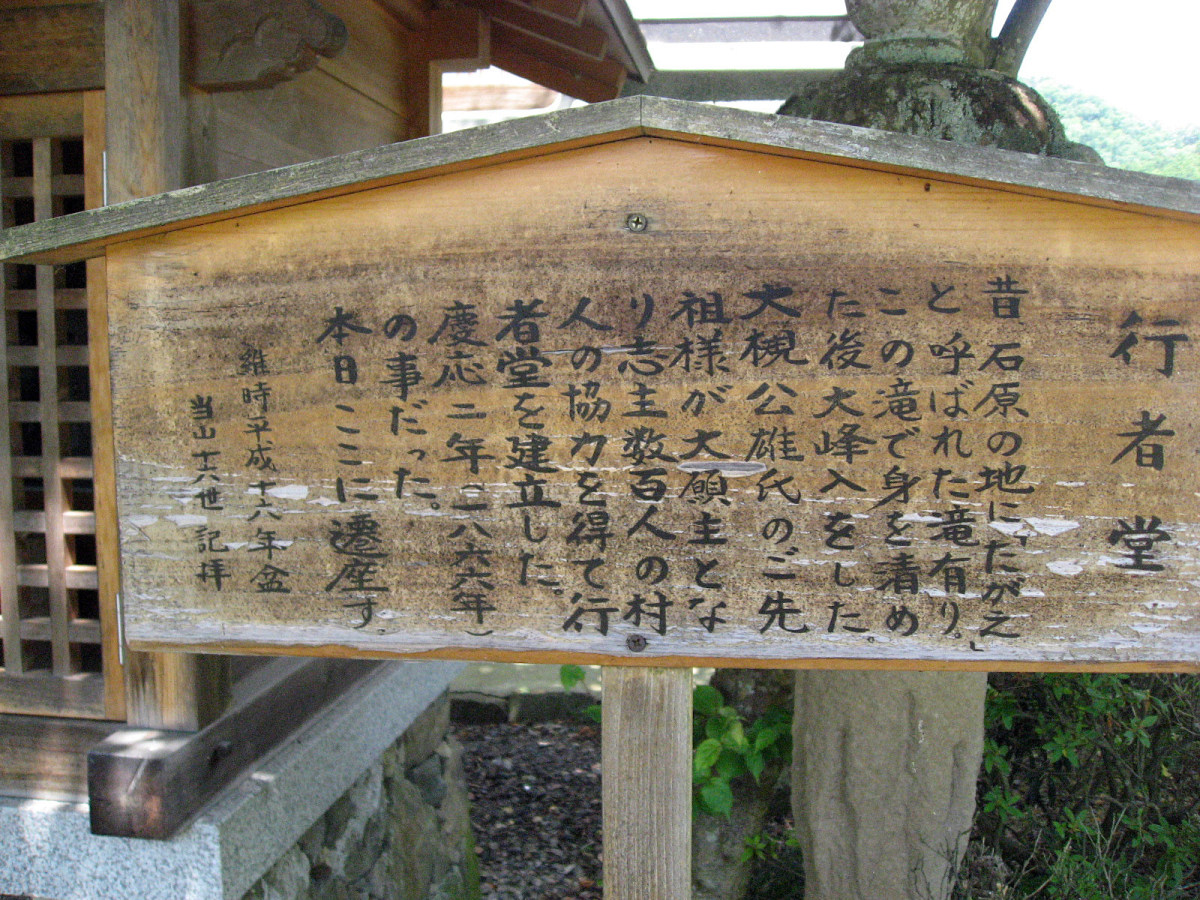 行者堂
昔石原の地に「たがえ」
と呼ばれた滝有り。
この滝で身を清め
た後大峰入をした。
大槻公雄氏のご先
祖様が大願主とな
り志主数百人の村
人の協力を得て行
者堂を建立した。
慶応二年(一八六六年)
の事だった。
本日ここに遷座す
維時平成十八年盆
当山十六世 記拝